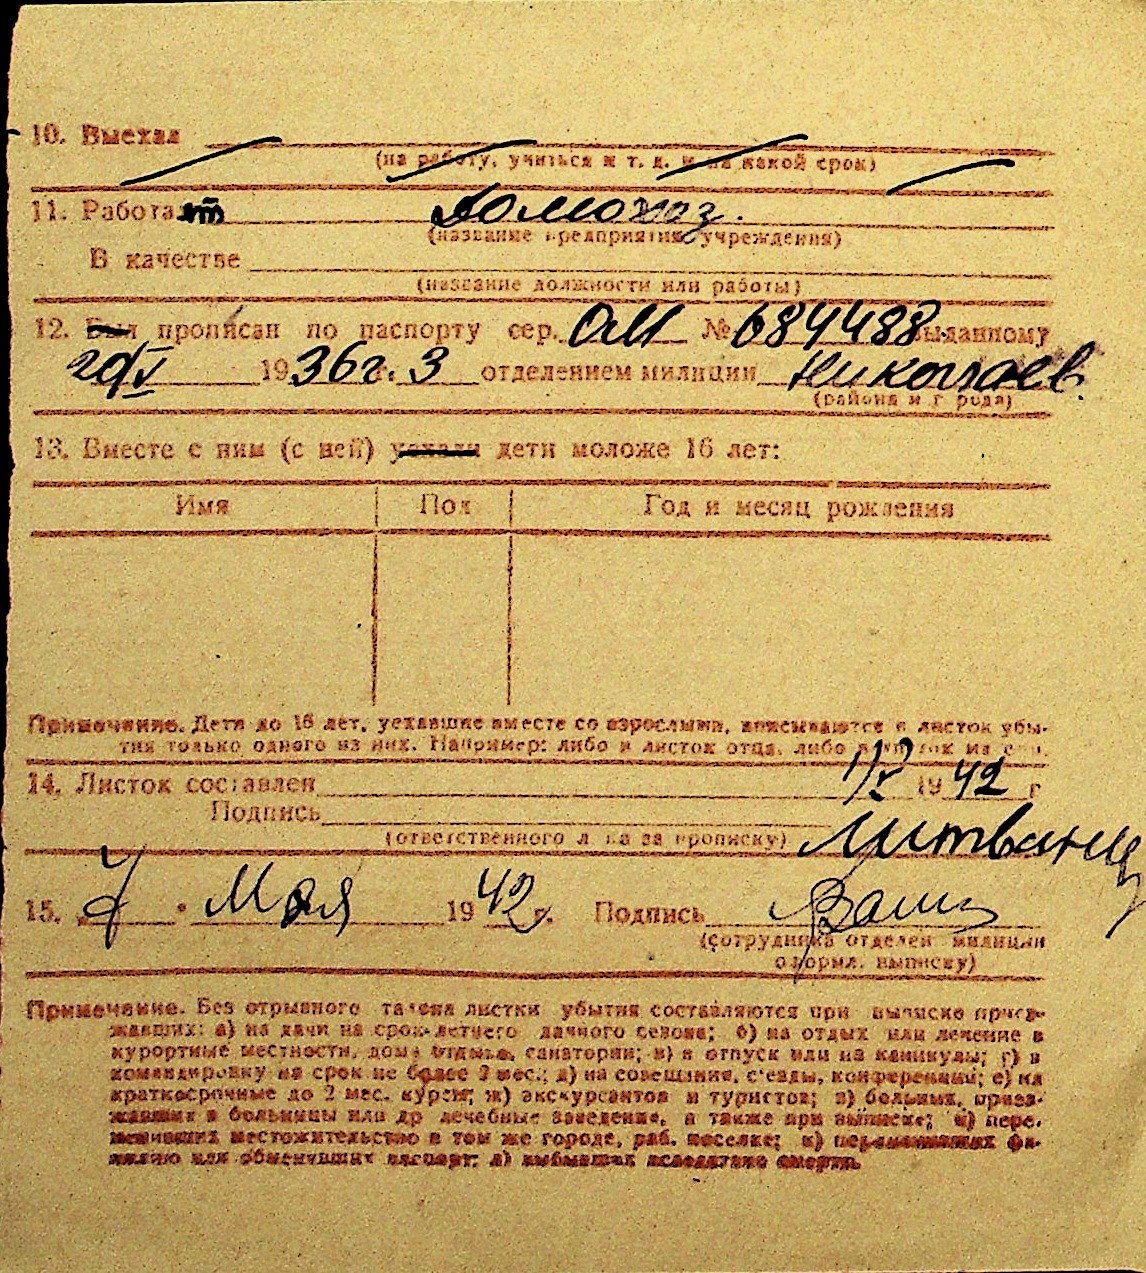 10. Выехал
(на работу, учиться и т. д. и на какой срок)
11. Работает Домохоз.
(название предприятия, учреждения)
В качестве
(название должности или работы)
12. Был прописан по паспорту сер. ОМ № 684488 выданному
1936 г. 3 отделением милиции Николаев.
(района и города)
13. Вместе с ним (с ней) уехали дети моложе 16 лет:
Имя Пол Год и месяц рождения
Примечание. Дети до 16 лет, уехавшие вместе со взрослыми, вписываются в листок убы-
тия только одного из них. Например: либо в листок отца, либо в листок матери.
14. Листок составлен 1942 г
Подпись
(ответственного лица за прописку)
15. 7 " Мая 1942 г. Подпись
(сотрудника отделен. милиции
оформл. выписку)
Примечание. Без отрывного талона листки убытия составляются при выписке приез-
жавших: а) на дачи на срок летнего дачного сезона; б) на отдых или лечение в
курортные местности, дома отдыха, санатории; в) в отпуск или на каникулы; г) в
командировку на срок не более 2 мес.; д) на совещания, съезды, конференции; е) на
краткосрочные до 2 мес. курсы; ж) экскурсантов и туристов; з) больных, приез-
жавших в больницы или др лечебные заведения, а также при выписке; и) пере-
менивших местожительство в том же городе, раб. поселке; к) переменивших фа-
милию или обменявших паспорт; л) выбывших вследствие смерти.